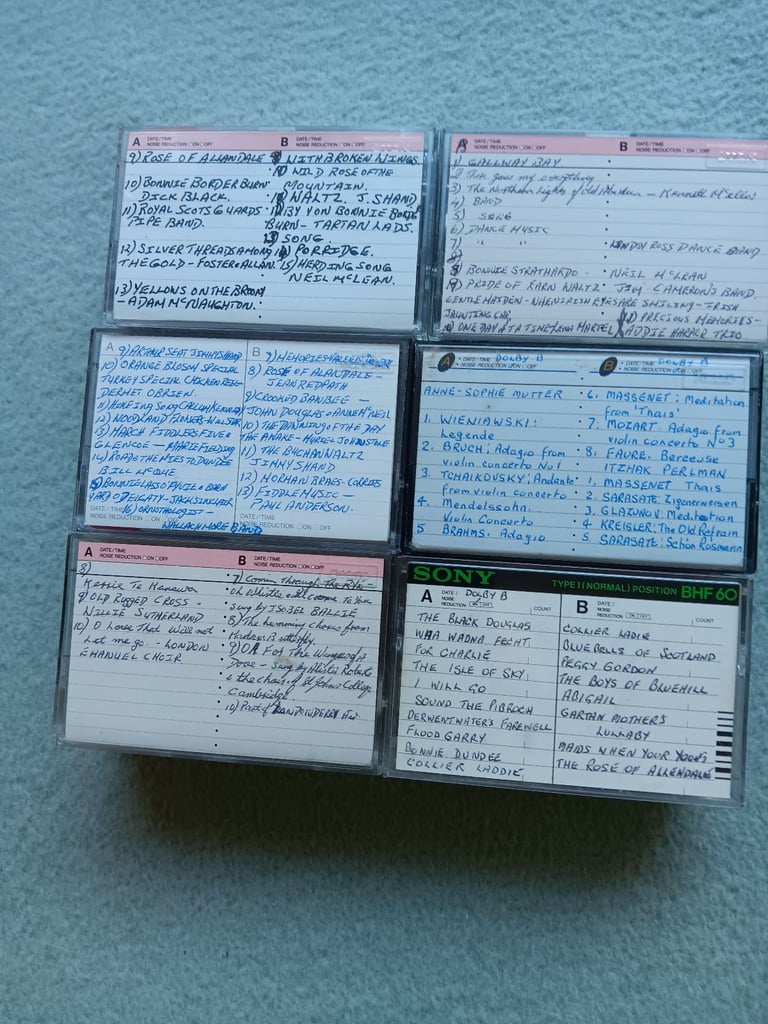 A DATE/TIME
NOISE REDUCTION ON OFF
9) ROSE OF ALLANDALE
10) BONNIE BORDER BURN
DICK BLACK.
11) ROYAL SCOTS GUARDS
PIPE BAND.
12) SILVER THREADS AMONG
THE GOLD - FOSTER & ALLAN.
13) YELLOWS ON THE BROOM
- ADAM McNAUGHTON.
B DATE/TIME
NOISE REDUCTION ON OFF
WITH BROKEN WINGS
WILD ROSE OF THE
MOUNTAIN.
WALTZ. J. SHAND
BY YON BONNIE BORDER
BURN - TARTAN LADS.
SONG.
PORRIDGE.
15) HERDING SONG
NEIL McLEAN.
A DATE/TIME
NOISE REDUCTION ON OFF
B DATE/TIME
NOISE REDUCTION ON OFF
1) GALLWAY BAY.
goes my everything
3) The Northern Lights of old Aberdeen - Kenneth McKellar
4) BAND
5) SONG
6) DANCE MUSIC
7) " " LINDSY ROSS DANCE BAND
8) BONNIE STRATHARDO - NEIL McLEAN
9) PRIDE OF EARN WALTZ JIM CAMERON'S BAND.
GENTLE MAIDEN - WHEN IRISH EYES ARE SMILING - IRISH
JAUNTING CAR. PRECIOUS MEMORIES -
ONE DAY AT A TIME LENA MARTEL ADDIE HARPER TRIO
A
9) ARTHUR SEAT JIMMY SHAND
10) ORANGE BLOSOM SPECIAL
TURKEY SPECIAL CHICKEN REEL
DERMET OBRIEN.
11) HERDING SONG CALLUM KENNEDY
12) WOODLAND FLOWERS
13) MARCH FIDDLERS FIVE
GLENCOE - MARIE FIELDING
14) ROAD THE MIES TO DUNDEE
BILL McCUE
15) BONNIE LASS O FYVIE & BARN
YARD O DELGATY - JACK SINCLAIR
16) ORNATHOLOGIST -
WALLACHMORE BAND
DATE/TIME
NOISE REDUCTION
B
7) MEMORIES
8) ROSE OF ALANDALE -
JEAN REDPATH
9) CROOKED BAWBEE -
JOHN DOUGLAS & ANNE McNEIL
10) THE DAWNING OF THE DAY
MURIEL JOHNSTONE
11) THE BUCHAN WALTZ
JIMMY SHAND
12) MORHAN BRAES - CORRIES
13) FIDDLE MUSIC -
PAUL ANDERSON.
DATE/TIME
NOISE REDUCTION ON OFF
A DATE/TIME DOLBY B
NOISE REDUCTION ON OFF
ANNE-SOPHIE MUTTER
1. WIENIAWSKI:
Legende
2. BRUCH: Adagio from
violin concerto No1
3. TCHAIKOVSKY: Andante
from violin concerto
4. Mendelssohn.
Violin Concerto
5 BRAHMS. Adagio
B DATE/TIME DOLBY B
NOISE REDUCTION ON OFF
6. MASSENET: Meditation
from 'Thais'
7. MOZART. Adagio from
violin concerto No 3
8. FAURE. Berceuse
ITZHAK PERLMAN
1. MASSENET Thais
2. SARASATE: Zigenerweisen
3. GLAZUNOV: Meditation
4 KREISLER: The Old Refrain
5. SARASATE: Schön Rosmarin
A DATE/TIME
NOISE REDUCTION ON OFF
8)
Te Kanawa
9) OLD RUGGED CROSS -
WILLIE SUTHERLAND
10) O Love That will not
let me go. - LONDON
EMANUEL CHOIR
B DATE/TIME
NOISE REDUCTION ON OFF
7) Comin Through the Rye -
Oh Whistle & I'll come To You
sung by ISOBEL BAILLIE
8) The humming chorus from
Madam Butterfly.
9) Oh For The Wings of A
Dove - sung by Alistir Roberts
& the choir of St Johns College
Cambridge.
10) Part of LONDONDERRY Air
SONY TYPE I (NORMAL) POSITION BHF 60
A DATE: DOLBY B
NOISE REDUCTION ON OFF COUNT
THE BLACK DOUGLAS
WHA WADNA FECHT
FOR CHARLIE
THE ISLE OF SKY
I WILL GO
SOUND THE PIBROCH
DERWENTWATER'S FAREWELL
FLOOD GARRY
BONNIE DUNDEE
COLLIER LADDIE
B DATE:
NOISE REDUCTION ON OFF COUNT
COLLIER LADIE
BLUEBELLS OF SCOTLAND
PEGGY GORDON
THE BOYS OF BLUEHILL
ABIGAIL
GARTAN MOTHERS
LULLABY
MAIDS WHEN YOUR YOUNG
THE ROSE OF ALLENDALE